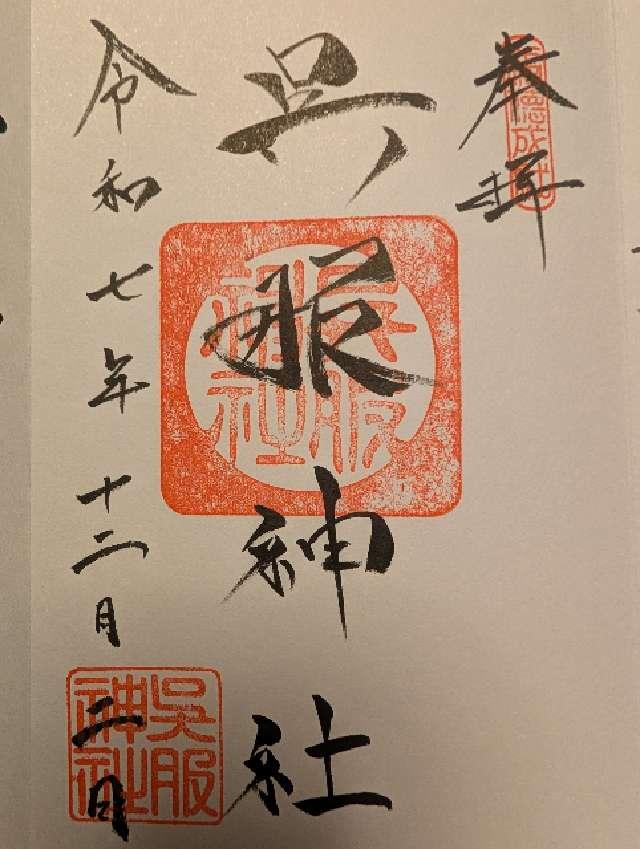 奉拝
呉服神社
呉服神社
令和七年十二月二日
呉服神社